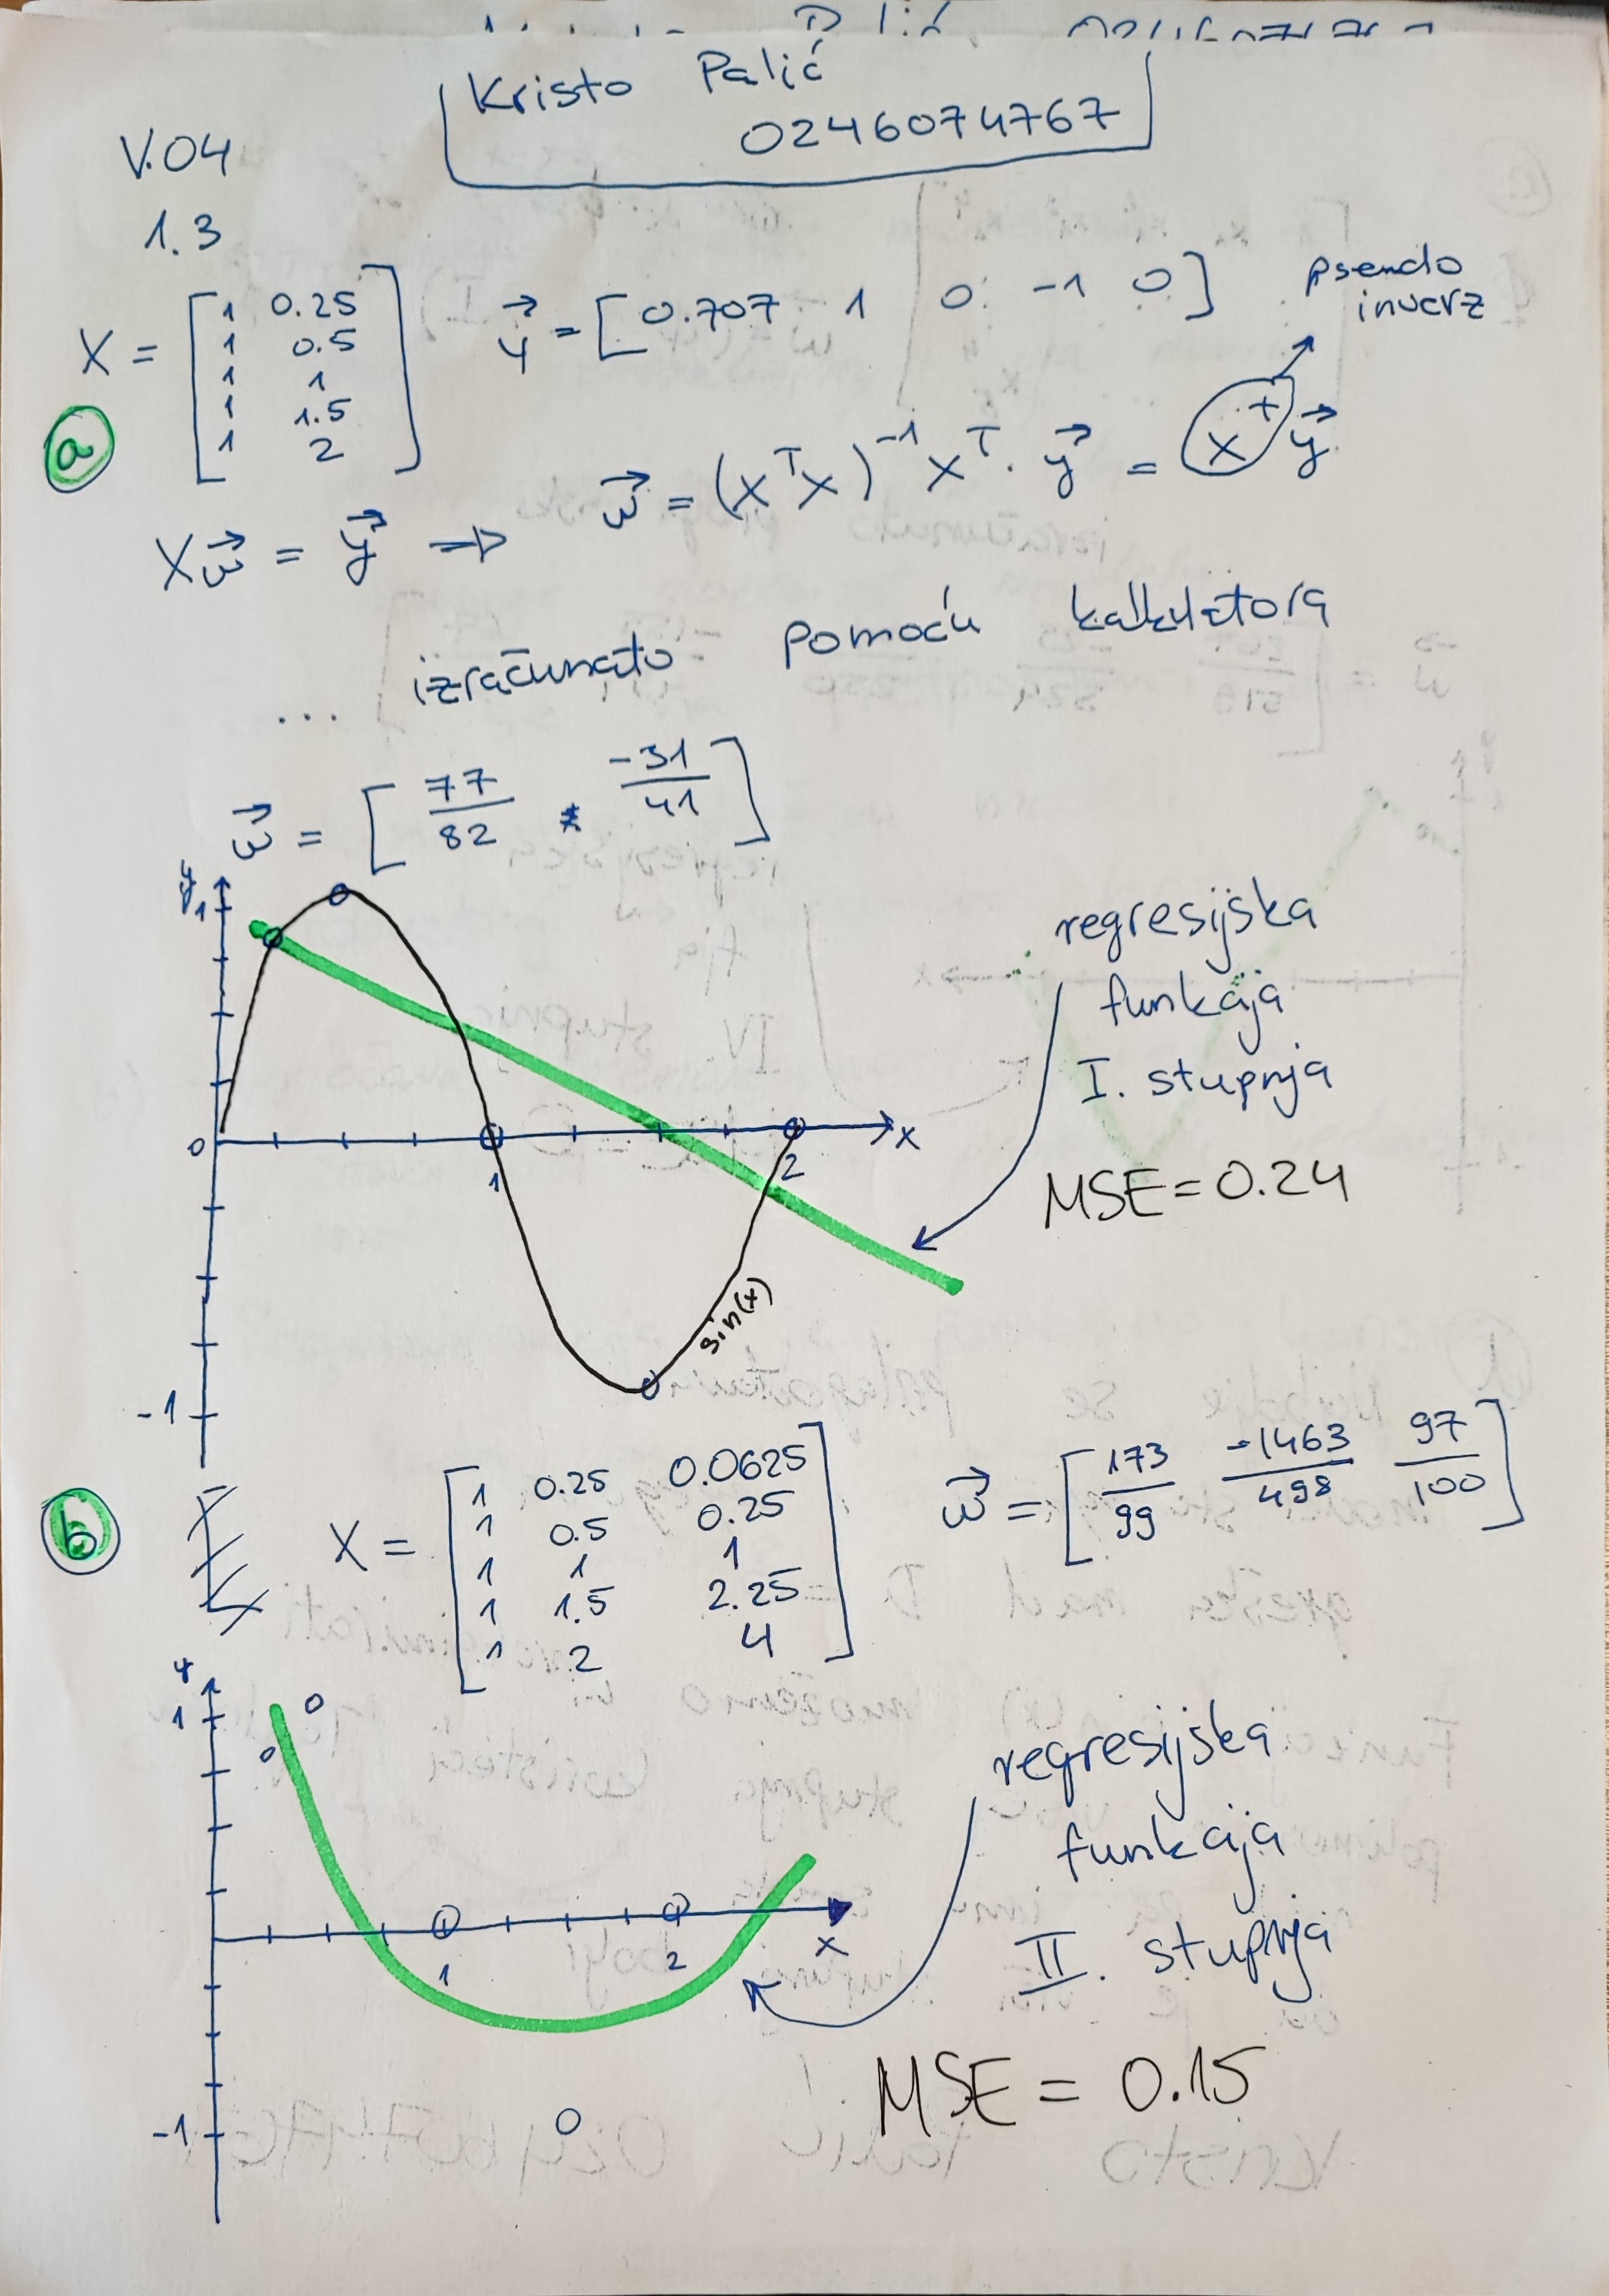 Kristo Palić
0246074767
V.04
1.3
X = [ 1 0.25
1 0.5
1 1
1 1.5
1 2 ]
y = [ 0.707 1 0 -1 0 ]
pseudo
inverz
a
Xw = y ⇒ w = (XᵀX)⁻¹ Xᵀ · y = X⁺ y
... izračunato pomoću kalkulatora
w = [ 77/82 -31/41 ]
y
1
0
1
2
x
-1
sin(x)
regresijska
funkcija
I. stupnja
MSE = 0.24
b
X = [ 1 0.25 0.0625
1 0.5 0.25
1 1 1
1 1.5 2.25
1 2 4 ]
w = [ 173/99 -1463/498 97/100 ]
y
1
1
2
x
-1
regresijska
funkcija
II. stupnja
MSE = 0.15